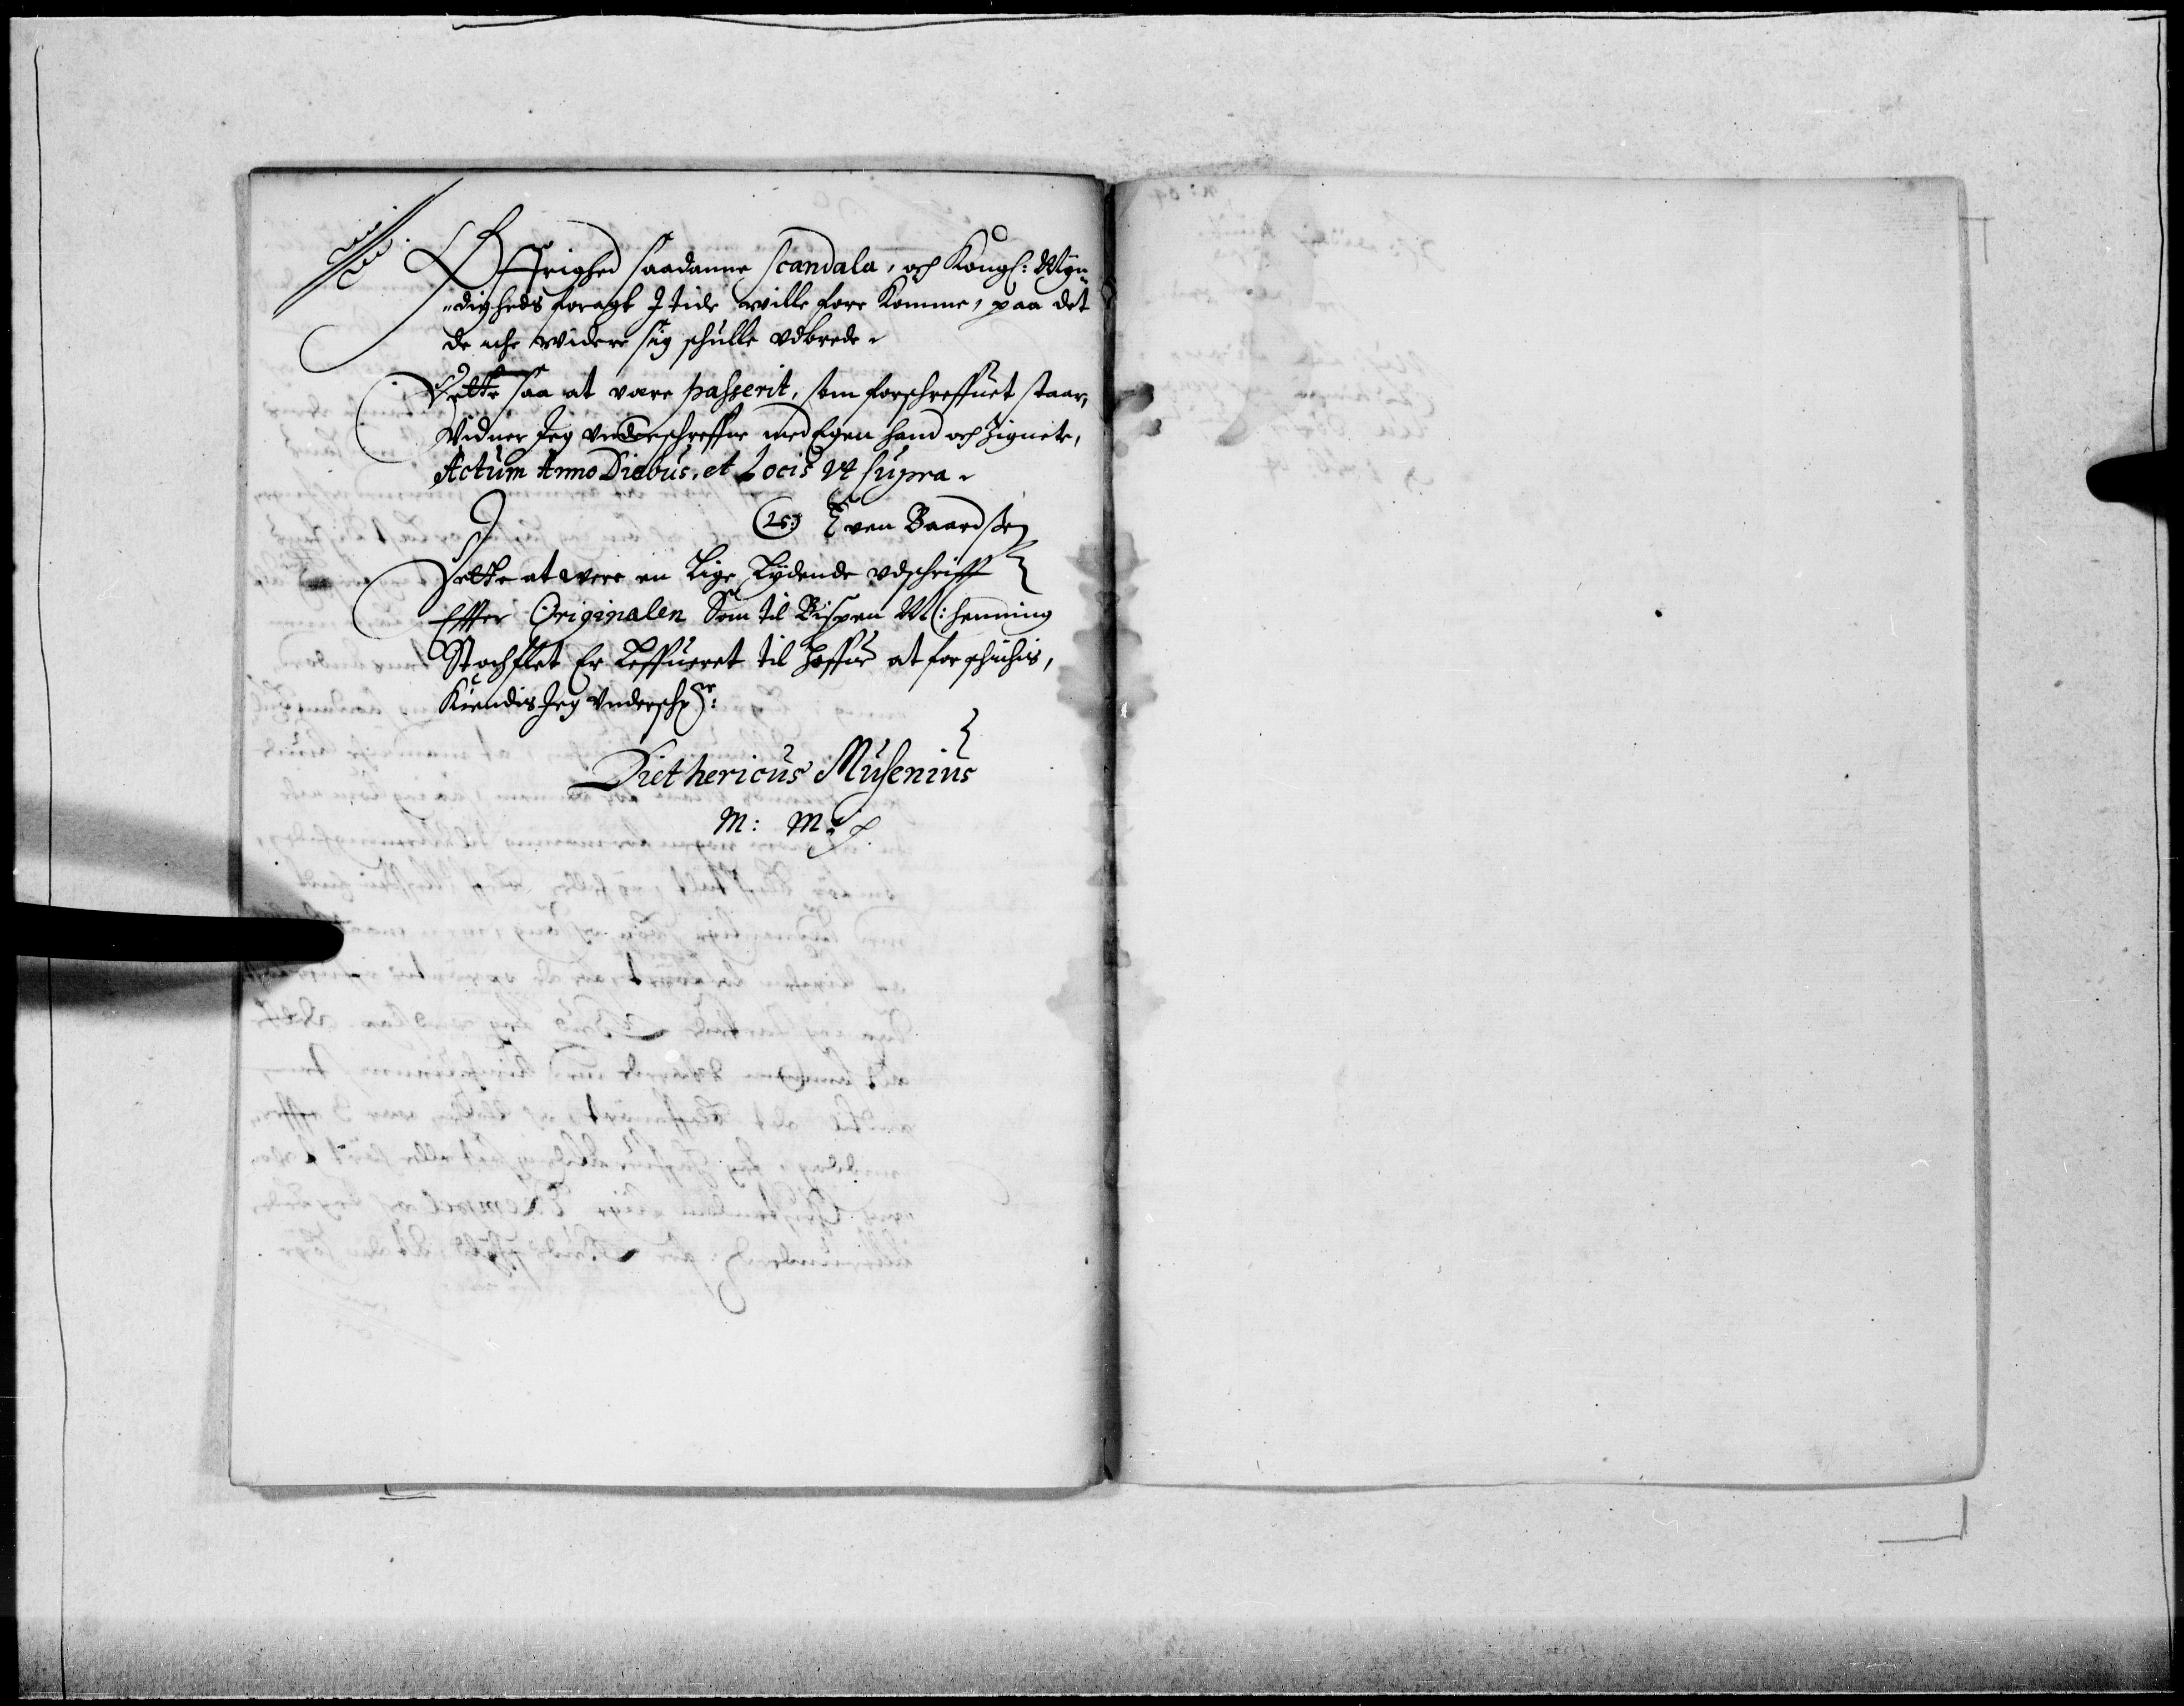 Øffrighed saadanne scandala, och Kongl: Myn„
„digheds foragt J tide wille fore Komme, paa det
de iche widere sig schulle vdbrede.
Dette saa at vere passerit, som forschreffuet staar,
Vidner Jeg vnderschreffne med Egen hand och Zignete,
Actum Anno Diebus, et Locis vt supra.
(LS:) Even Baardsen
Dette at were en Lige Lydende vdschrifft
Effter Originalen Som til Bispen M: Henning
Stochflet Er Leffueret til Hoffue at forschichis,
Kiendis Jeg Vnderschr:
Diethericus Musenius
m: m: p.